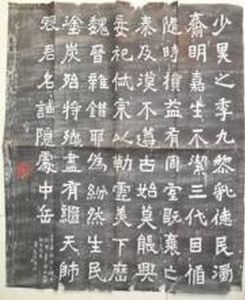 少昊之季九黎亂德民瀆
齋明嘉生不潔三代因循
隨時損益有周室既衰之
秦及漢不遵古始莫能興
妄祀岱宗以勒虛美下歷
魏晉雜錯耶偽紛然生民
塗炭殆將殲盡有繼天師
寇君名謙隱處中岳